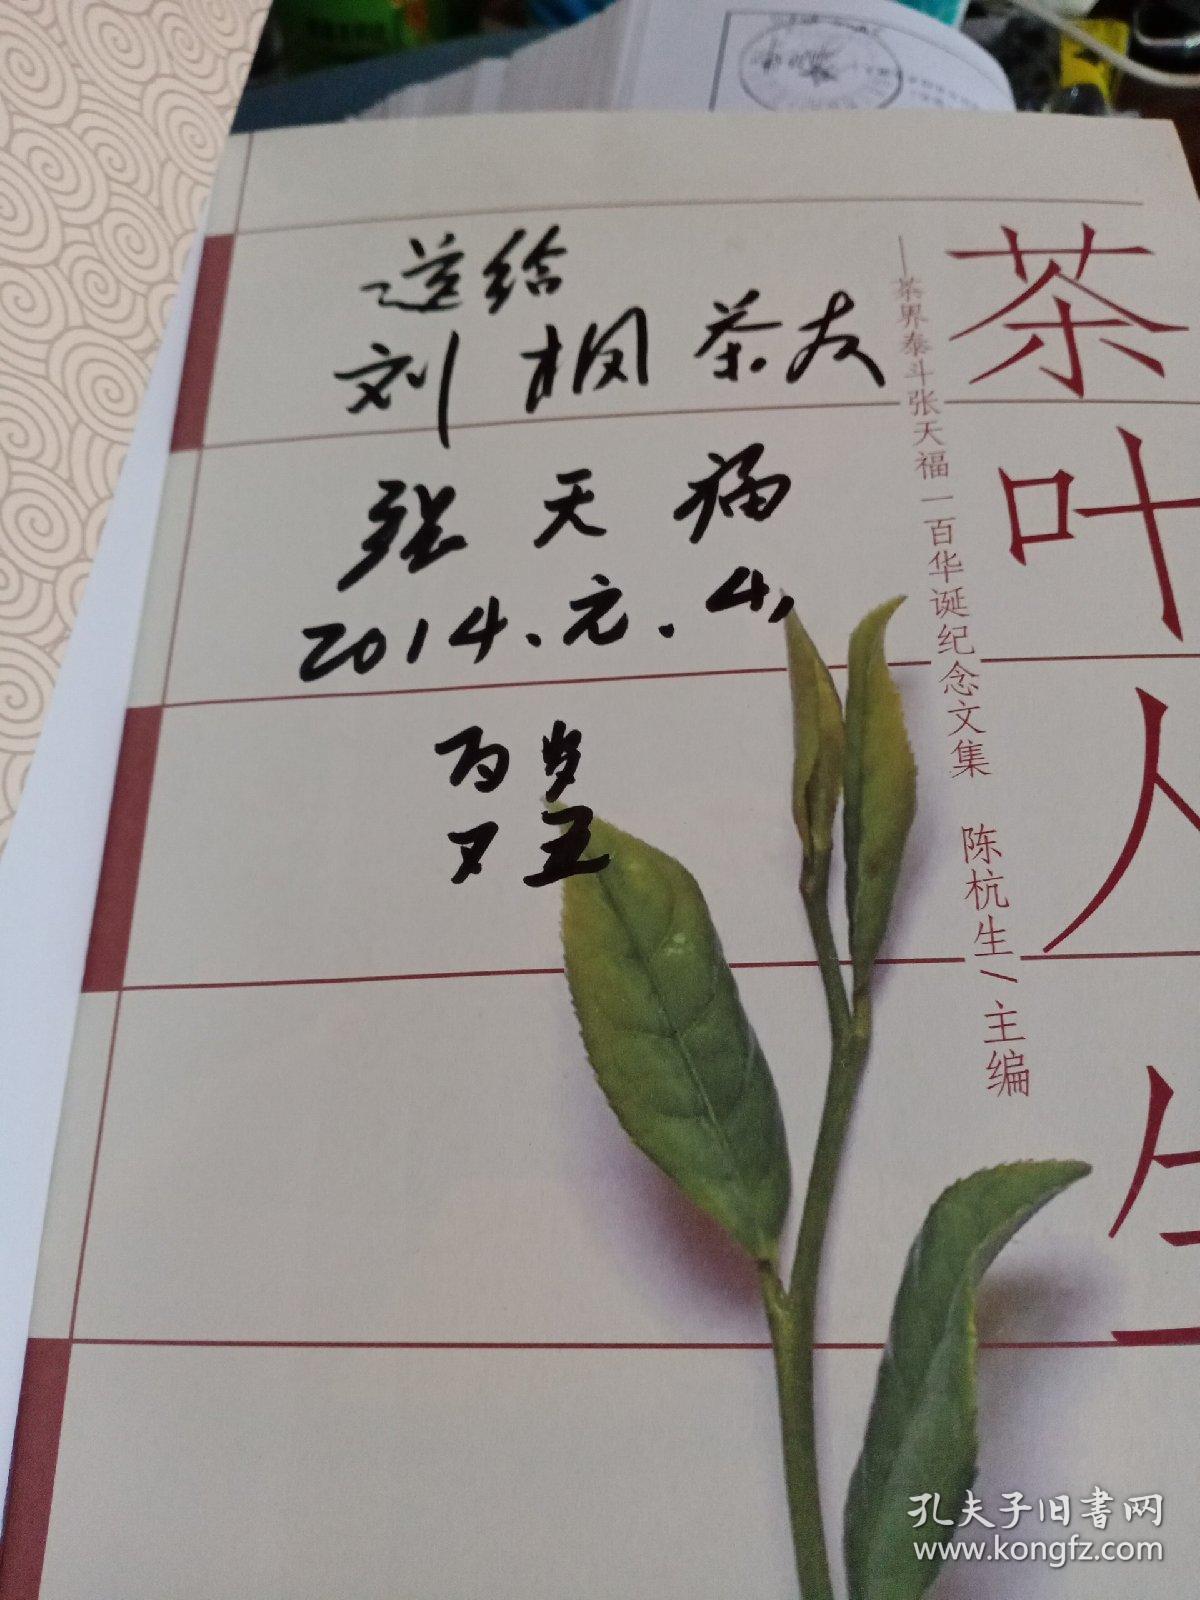 送给
刘枫茶友
张天福
2014.元.4,
百岁
又五
茶叶人生
——茶界泰斗张天福一百华诞纪念文集 陈杭生/主编
孔夫子旧书网
www.kongfz.com